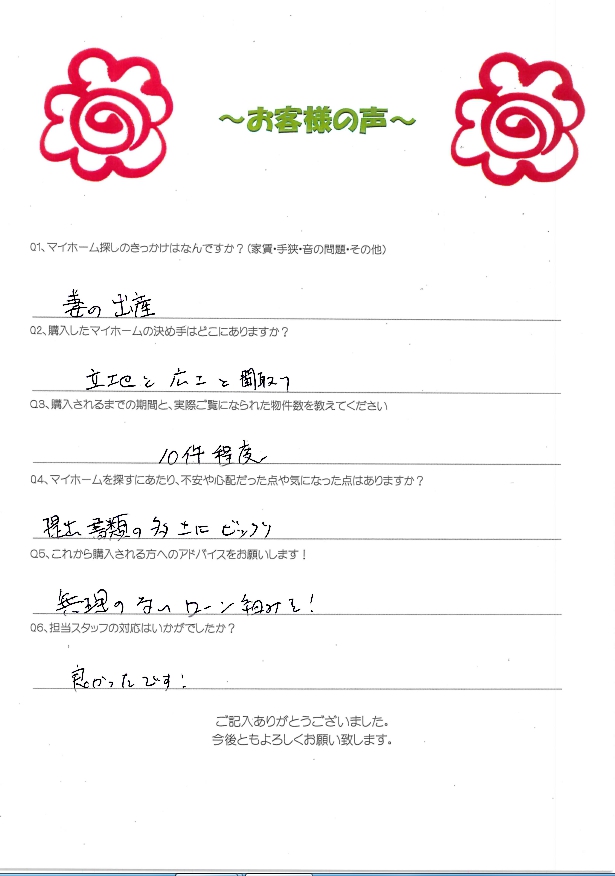 ～お客様の声～
Q1、マイホーム探しのきっかけはなんですか？（家賃・手狭・音の問題・その他）
妻の出産
Q2、購入したマイホームの決め手はどこにありますか？
立地と広さと間取り
Q3、購入されるまでの期間と、実際ご覧になられた物件数を教えてください
10件程度
Q4、マイホームを探すにあたり、不安や心配だった点や気になった点はありますか？
提出書類の多さにビックリ
Q5、これから購入される方へのアドバイスをお願いします！
無理のないローン組みを！
Q6、担当スタッフの対応はいかがでしたか？
良かったです！
ご記入ありがとうございました。
今後ともよろしくお願い致します。